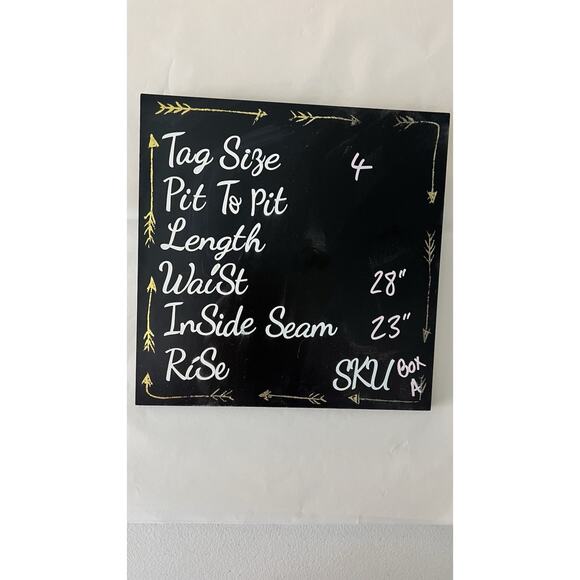 Tag Size 4
Pit To Pit
Length
Waist 28"
InSide Seam 23"
RiSe
SKU Box A